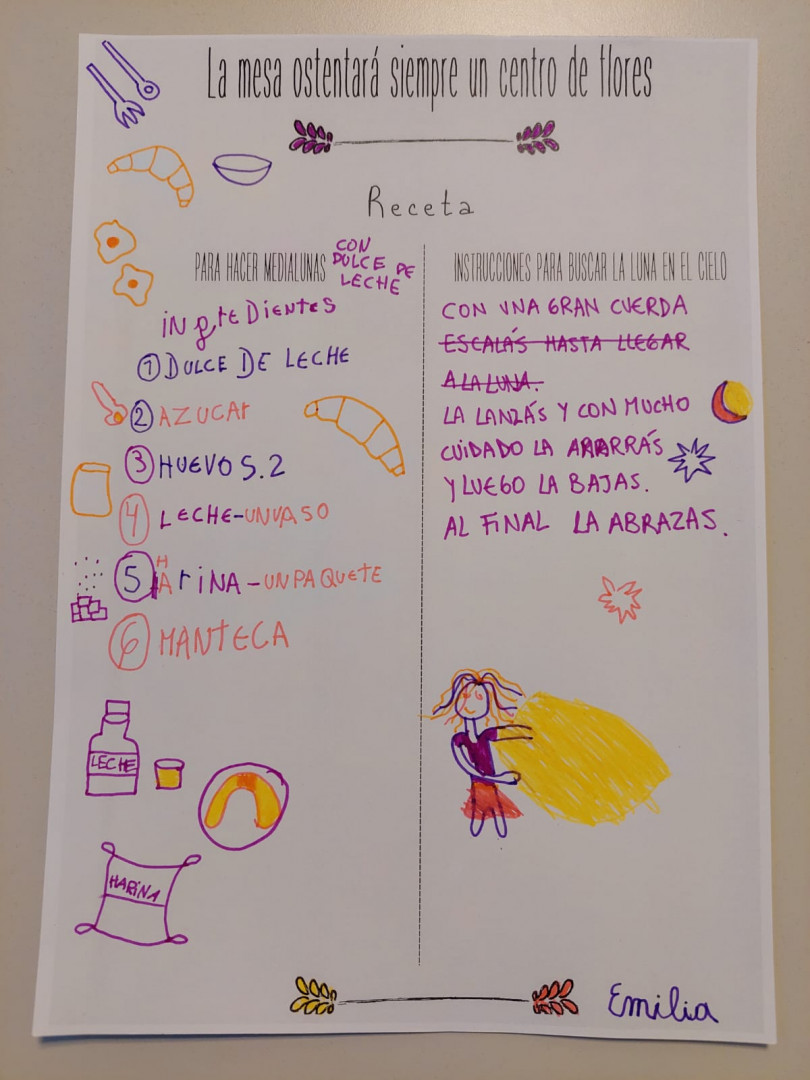 La mesa ostentará siempre un centro de flores
Receta
PARA HACER MEDIALUNAS CON
DULCE DE
LECHE
iNgreDientes
1 DULCE DE LECHE
2 AZUCAr
3 HUEVOS. 2
4 LECHE-UN VASO
5 HAriNA-UN PAQUETE
6 MANTECA
LECHE
HARiNA
INSTRUCCIONES PARA BUSCAR LA LUNA EN EL CIELO
CON UNA GRAN CUERDA
ESCALÁS HASTA LLEGAR
A LA LUNA.
LA LANZÁS Y CON MUCHO
CUIDADO LA ARRÁS
Y LUEGO LA BAJAS.
AL FiNAL LA ABRAZAS.
Emilia